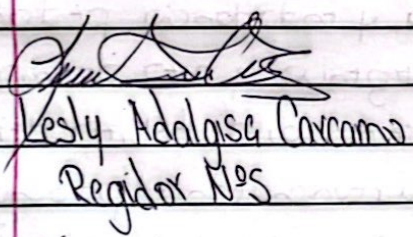 Lesly Adalgisa Carcamo
Regidor Nº5